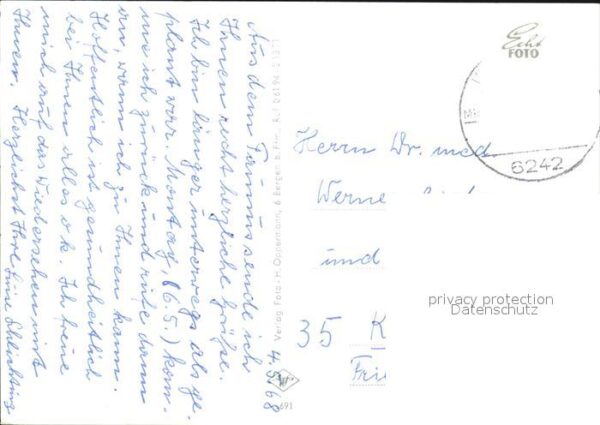 4.5.68
Aus dem Taunus sende ich
Ihnen recht herzliche Grüße.
Ich bin länger unterwegs als ge-
plant war. Montag, (6.5.) kom-
me ich zurück und rufe dann
an, wann ich zu Ihnen kann.
Hoffentlich ist gesundheitlich
bei Ihnen alles o.k. Ich freue
mich auf das Wiedersehen mit
Ihnen. Herzlichst Ihre
Verlag Foto-H. Oppermann, 6 Bergen b. Ffm.
691
Echt
FOTO
6242
Herrn Dr. med.
Werne
und
35 K
Fri
privacy protection
Datenschutz